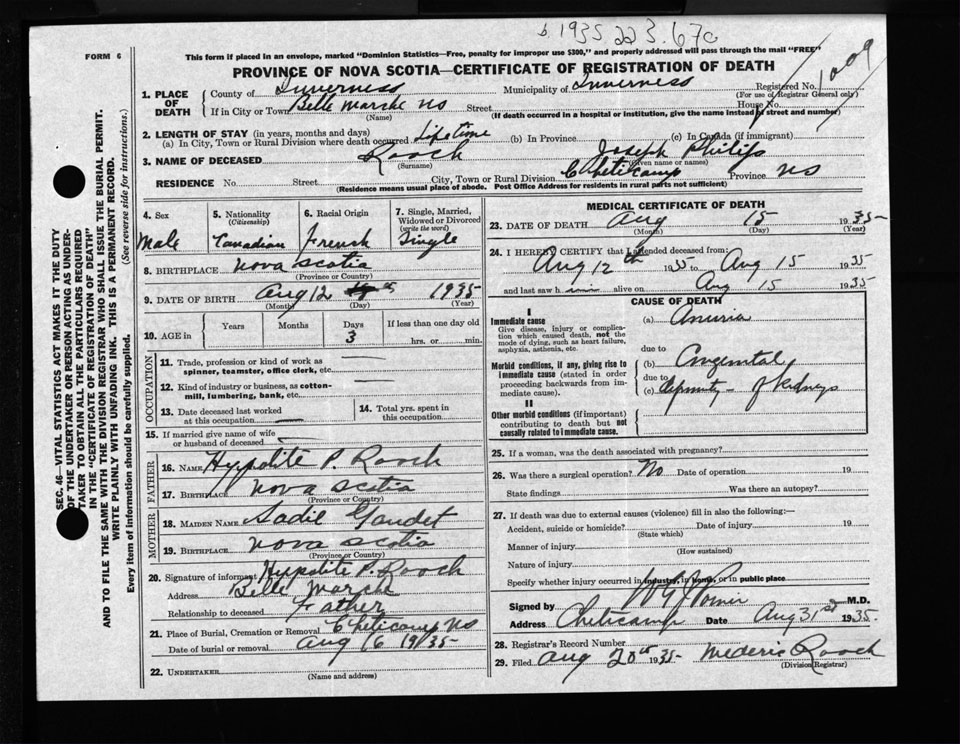 b. 1935 223.670
1009
FORM 6
This form if placed in an envelope, marked "Dominion Statistics—Free, penalty for improper use $300," and properly addressed will pass through the mail "FREE"
PROVINCE OF NOVA SCOTIA—CERTIFICATE OF REGISTRATION OF DEATH
1. PLACE OF DEATH
County of Inverness Municipality of Inverness Registered No.
(For use of Registrar General only)
If in City or Town Belle Marche NS Street House No.
(Name) (If death occurred in a hospital or institution, give the name instead of street and number)
2. LENGTH OF STAY (in years, months and days)
(a) In City, Town or Rural Division where death occurred Lifetime (b) In Province (c) In Canada (if immigrant)
3. NAME OF DECEASED Rooch Joseph Philip
(Surname) (Given name or names)
RESIDENCE No. Street City, Town or Rural Division Cheticamp Province NS
(Residence means usual place of abode. Post Office Address for residents in rural parts not sufficient)
4. Sex Male
5. Nationality (Citizenship) Canadian
6. Racial Origin French
7. Single, Married, Widowed or Divorced (write the word) Single
8. BIRTHPLACE Nova Scotia
(Province or Country)
9. DATE OF BIRTH Aug 12 1935
(Month) (Day) (Year)
10. AGE in Years Months Days 3 If less than one day old hrs. or min.
OCCUPATION
11. Trade, profession or kind of work as spinner, teamster, office clerk, etc.
12. Kind of industry or business, as cotton-mill, lumbering, bank, etc.
13. Date deceased last worked at this occupation
14. Total yrs. spent in this occupation
15. If married give name of wife or husband of deceased
FATHER
16. NAME Hypolite P. Rooch
17. BIRTHPLACE Nova Scotia
(Province or Country)
MOTHER
18. MAIDEN NAME Sadie Gaudet
19. BIRTHPLACE Nova Scotia
(Province or Country)
20. Signature of informant Hypolite P. Rooch
Address Belle Marche
Relationship to deceased Father
21. Place of Burial, Cremation or Removal Cheticamp NS
Date of burial or removal Aug 16 1935
22. UNDERTAKER
(Name and address)
MEDICAL CERTIFICATE OF DEATH
23. DATE OF DEATH Aug 15 1935
(Month) (Day) (Year)
24. I HEREBY CERTIFY that I attended deceased from:
Aug 12th 1935 to Aug 15 1935
and last saw him alive on Aug 15 1935
CAUSE OF DEATH
I
Immediate cause (a) Anuria
Give disease, injury or complication which caused death, not the mode of dying, such as heart failure, asphyxia, asthenia, etc.
due to
Morbid conditions, if any, giving rise to immediate cause (stated in order proceeding backwards from immediate cause). (b) Congenital
due to
(c) of kidneys
II
Other morbid conditions (if important) contributing to death but not causally related to immediate cause.
25. If a woman, was the death associated with pregnancy?
26. Was there a surgical operation? No Date of operation 19
State findings Was there an autopsy?
27. If death was due to external causes (violence) fill in also the following:—
Accident, suicide or homicide? Date of injury 19
(State which)
Manner of injury
(How sustained)
Nature of injury
Specify whether injury occurred in industry, in home, or in public place
Signed by M.D.
Address Cheticamp Date Aug 31st 1935
28. Registrar's Record Number
29. Filed Aug 20th 1935 Mederic Rooch
(Division Registrar)
SEC. 46—VITAL STATISTICS ACT MAKES IT THE DUTY
OF THE UNDERTAKER OR PERSON ACTING AS UNDER-
TAKER TO OBTAIN ALL THE PARTICULARS REQUIRED
IN THE "CERTIFICATE OF REGISTRATION OF DEATH"
AND TO FILE THE SAME WITH THE DIVISION REGISTRAR WHO SHALL ISSUE THE BURIAL PERMIT.
WRITE PLAINLY WITH UNFADING INK. THIS IS A PERMANENT RECORD.
Every item of information should be carefully supplied. (See reverse side for instructions.)